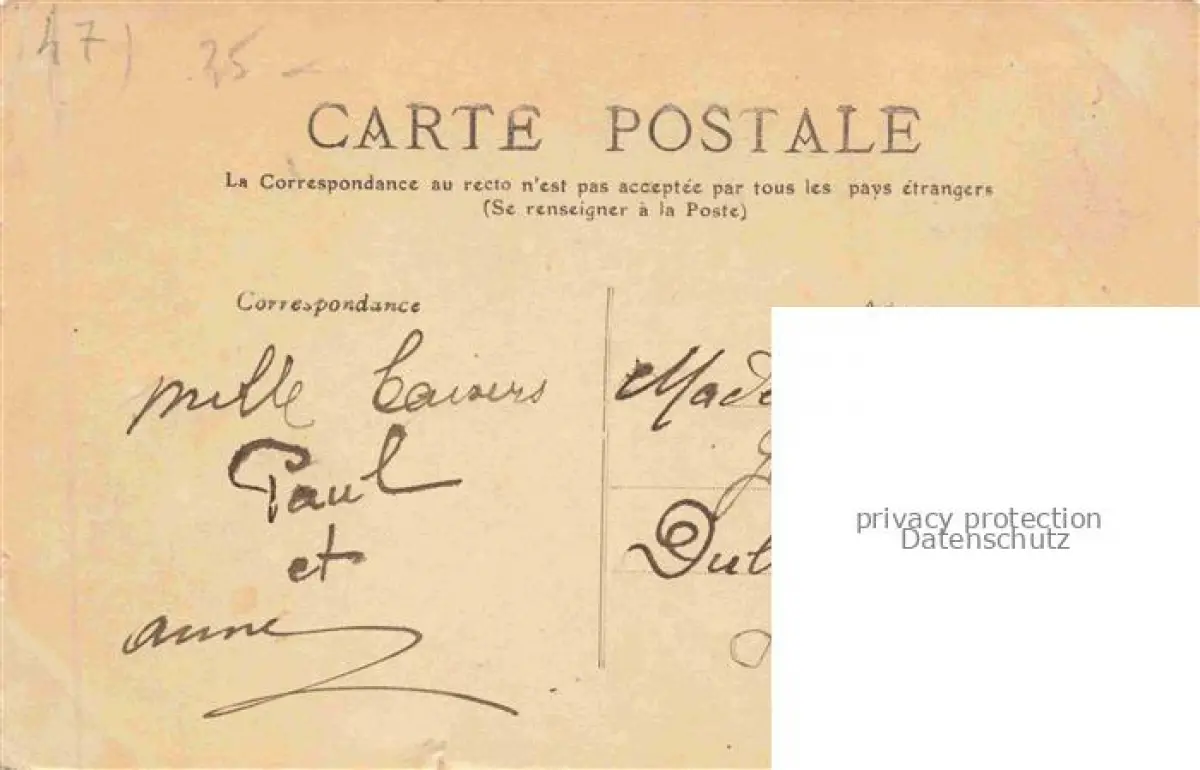 47)
25 -
CARTE POSTALE
La Correspondance au recto n'est pas acceptée par tous les pays étrangers
(Se renseigner à la Poste)
Correspondance
mille baisers
Paul
et
anne
privacy protection
Datenschutz